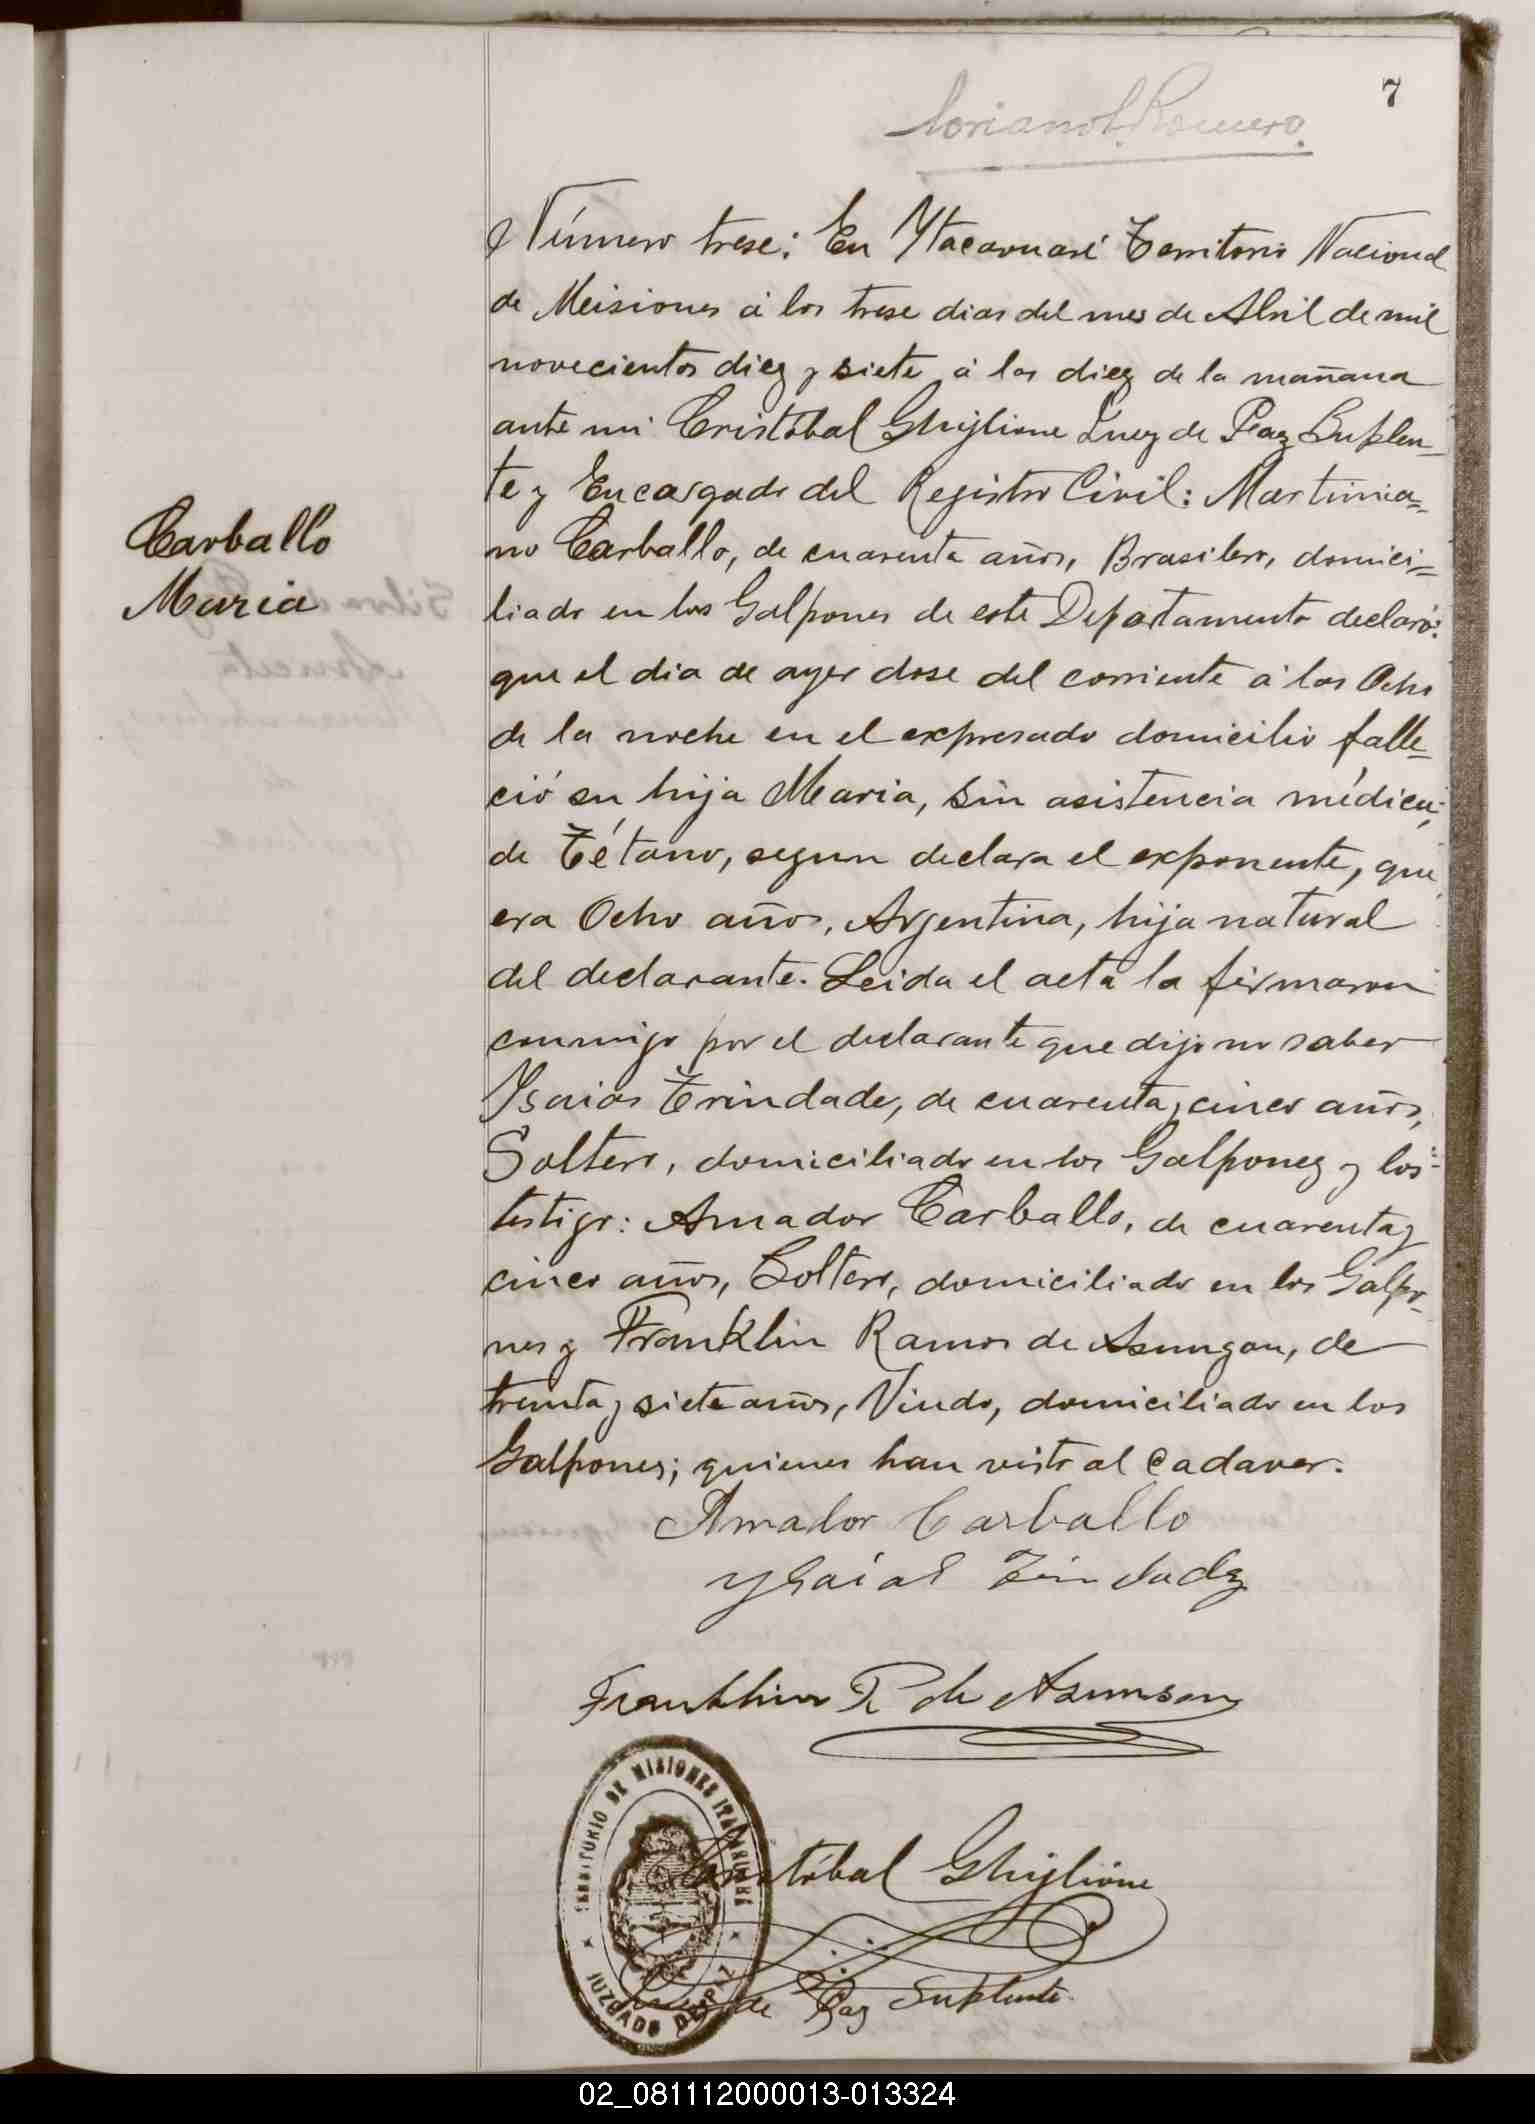 7
Romero.
Número trese: En Ytacaruaré Territorio Nacional
de Misiones á los trese dias del mes de Abril de mil
novecientos diez y siete á las diez de la mañana
ante mi Cristóbal Ghiglione Juez de Paz Suplen-
te y Encargado del Registro Civil: Martinia=
no Carballo, de cuarenta años, Brasilero, domici=
liado en los Galpones de este Departamento declaró:
que el dia de ayer dose del corriente á las Ocho
de la noche en el expresado domicilio falle=
ció su hija Maria, sin asistencia médica;
de Tétano, segun declara el exponente, que
era Ocho años, Argentina, hija natural
del declarante. Leida el acta la firmaron
conmigo por el declarante que dijo no saber
Ysaias Trindade, de cuarenta y cinco años,
Soltero, domiciliado en los Galpones y los
testigo: Amador Carballo, de cuarenta y
cinco años, Soltero, domiciliado en los Galpo-
nes y Franklin Ramos de Asunçon, de
treinta y siete años, Viudo, domiciliado en los
Galpones; quienes han visto al Cadaver.
Carballo
Maria
Amador Carballo
Ysaías Trindade
Franklin R de Asunson
Cristóbal Ghiglione
Juez de Paz Suplente.
TERRITORIO DE MISIONES ITACARUARÉ
JUZGADO DE PAZ
02_081112000013-013324